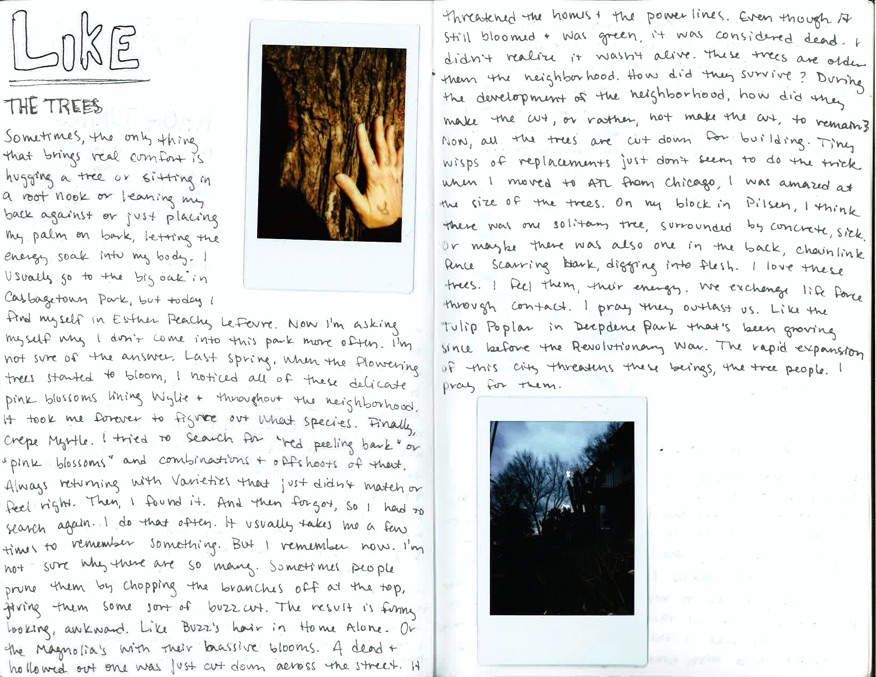 LIKE
THE TREES
Sometimes, the only thing
that brings real comfort is
hugging a tree or sitting in
a root nook or leaning my
back against or just placing
my palm on bark, letting the
energy soak into my body. I
usually go to the big oak in
Cabbagetown Park, but today I
find myself in Esther Peachy Lefevre. Now I'm asking
myself why I don't come into this park more often. I'm
not sure of the answer. Last spring, when the flowering
trees started to bloom, I noticed all of these delicate
pink blossoms lining Wylie + throughout the neighborhood.
it took me forever to figure out what species. Finally,
Crepe Myrtle. I tried to search for "red peeling bark" or
"pink blossoms" and combinations + offshoots of that.
Always returning with varieties that just didn't match or
feel right. Then, I found it. And then forgot, so I had to
search again. I do that often. It usually takes me a few
times to remember something. But I remember now. I'm
not sure why there are so many. Sometimes people
prune them by chopping the branches off at the top,
giving them some sort of buzzcut. The result is funny
looking, awkward. Like Buzz's hair in Home Alone. Or
the Magnolia's with their massive blooms. A dead +
hollowed out one was just cut down across the street. It
threatened the homes + the power lines. Even though it
still bloomed + was green, it was considered dead. I
didn't realize it wasn't alive. These trees are older
them the neighborhood. How did they survive? During
the development of the neighborhood, how did they
make the cut, or rather, not make the cut, to remain?
Now, all the trees are cut down for building. Tiny
wisps of replacements just don't seem to do the trick.
when I moved to ATL from Chicago, I was amazed at
the size of the trees. On my block in Pilsen, I think
there was one solitary tree, surrounded by concrete, sick.
Or maybe there was also one in the back, chainlink
fence scarring bark, digging into flesh. I love these
trees. I feel them, their energy. We exchange life force
through contact. I pray they outlast us. Like the
Tulip Poplar in Deepdene Park that's been growing
since before the Revolutionary War. The rapid expansion
of this city threatens these beings, the tree people. I
pray for them.